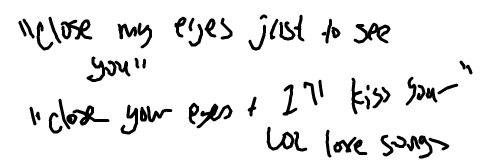 "close my eyes just to see
you"
"close your eyes + I'll kiss you"
LOL love songs